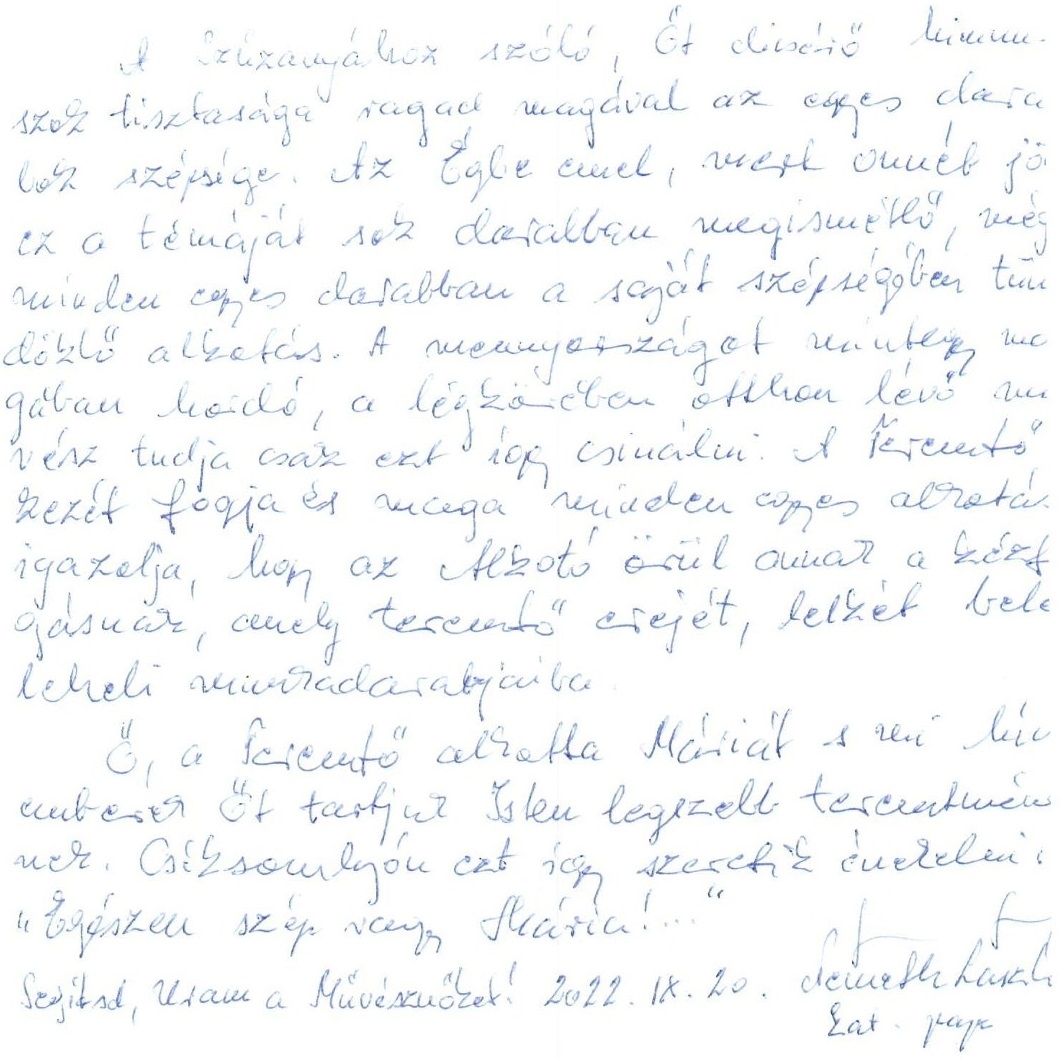 A Szűzanyához szóló, Őt dicsérő himnu-
szok tisztasága ragad magával az egyes dara
bok szépsége. Az Égbe emel, mert onnét jö
ez a témáját sok darabban megismétlő, még
minden egyes darabban a saját szépségében tün
döklő alkotás. A mennyországot mintegy ma
gában hordó, a légkörében otthon lévő mű
vész tudja csak ezt így csinálni. A Teremtő
kezét fogja és maga minden egyes alkotás
igazolja, hogy az Alkotó örül annak a kézf
ogásnak, amely teremtő erejét, lelkét bele
leheli munkadarabjaiba.
Ő, a Teremtő alkotta Máriát s mi hív
emberek Őt tartjuk Isten legszebb teremtmény
nek. Csíksomlyón ezt így szeretik énekelni:
„Egészen szép vagy Mária!..."
Segítsd, Uram a Művésznőket! 2022. IX. 20. Németh László
kat. pap